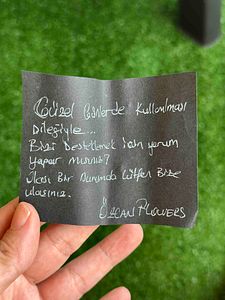 Güzel Günlerde Kullanılması
Dileğiyle...
Bizi Desteklemek için yorum
yapar mısınız?
Olası Bir Durumda Lütfen Bize
ulaşınız.
Özcan Flowers